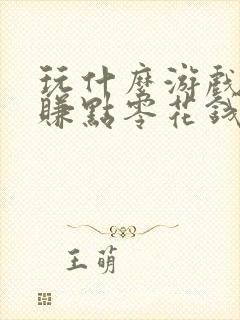 玩什麼游戲
賺點零花錢
王萌